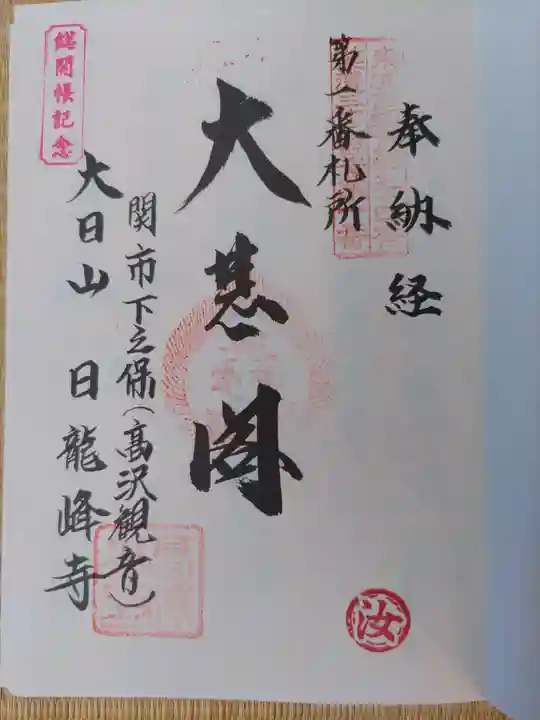 奉納経
第一番札所
大悲閣
関市下之保(高沢観音)
大日山 日龍峰寺
御開帳記念
汝